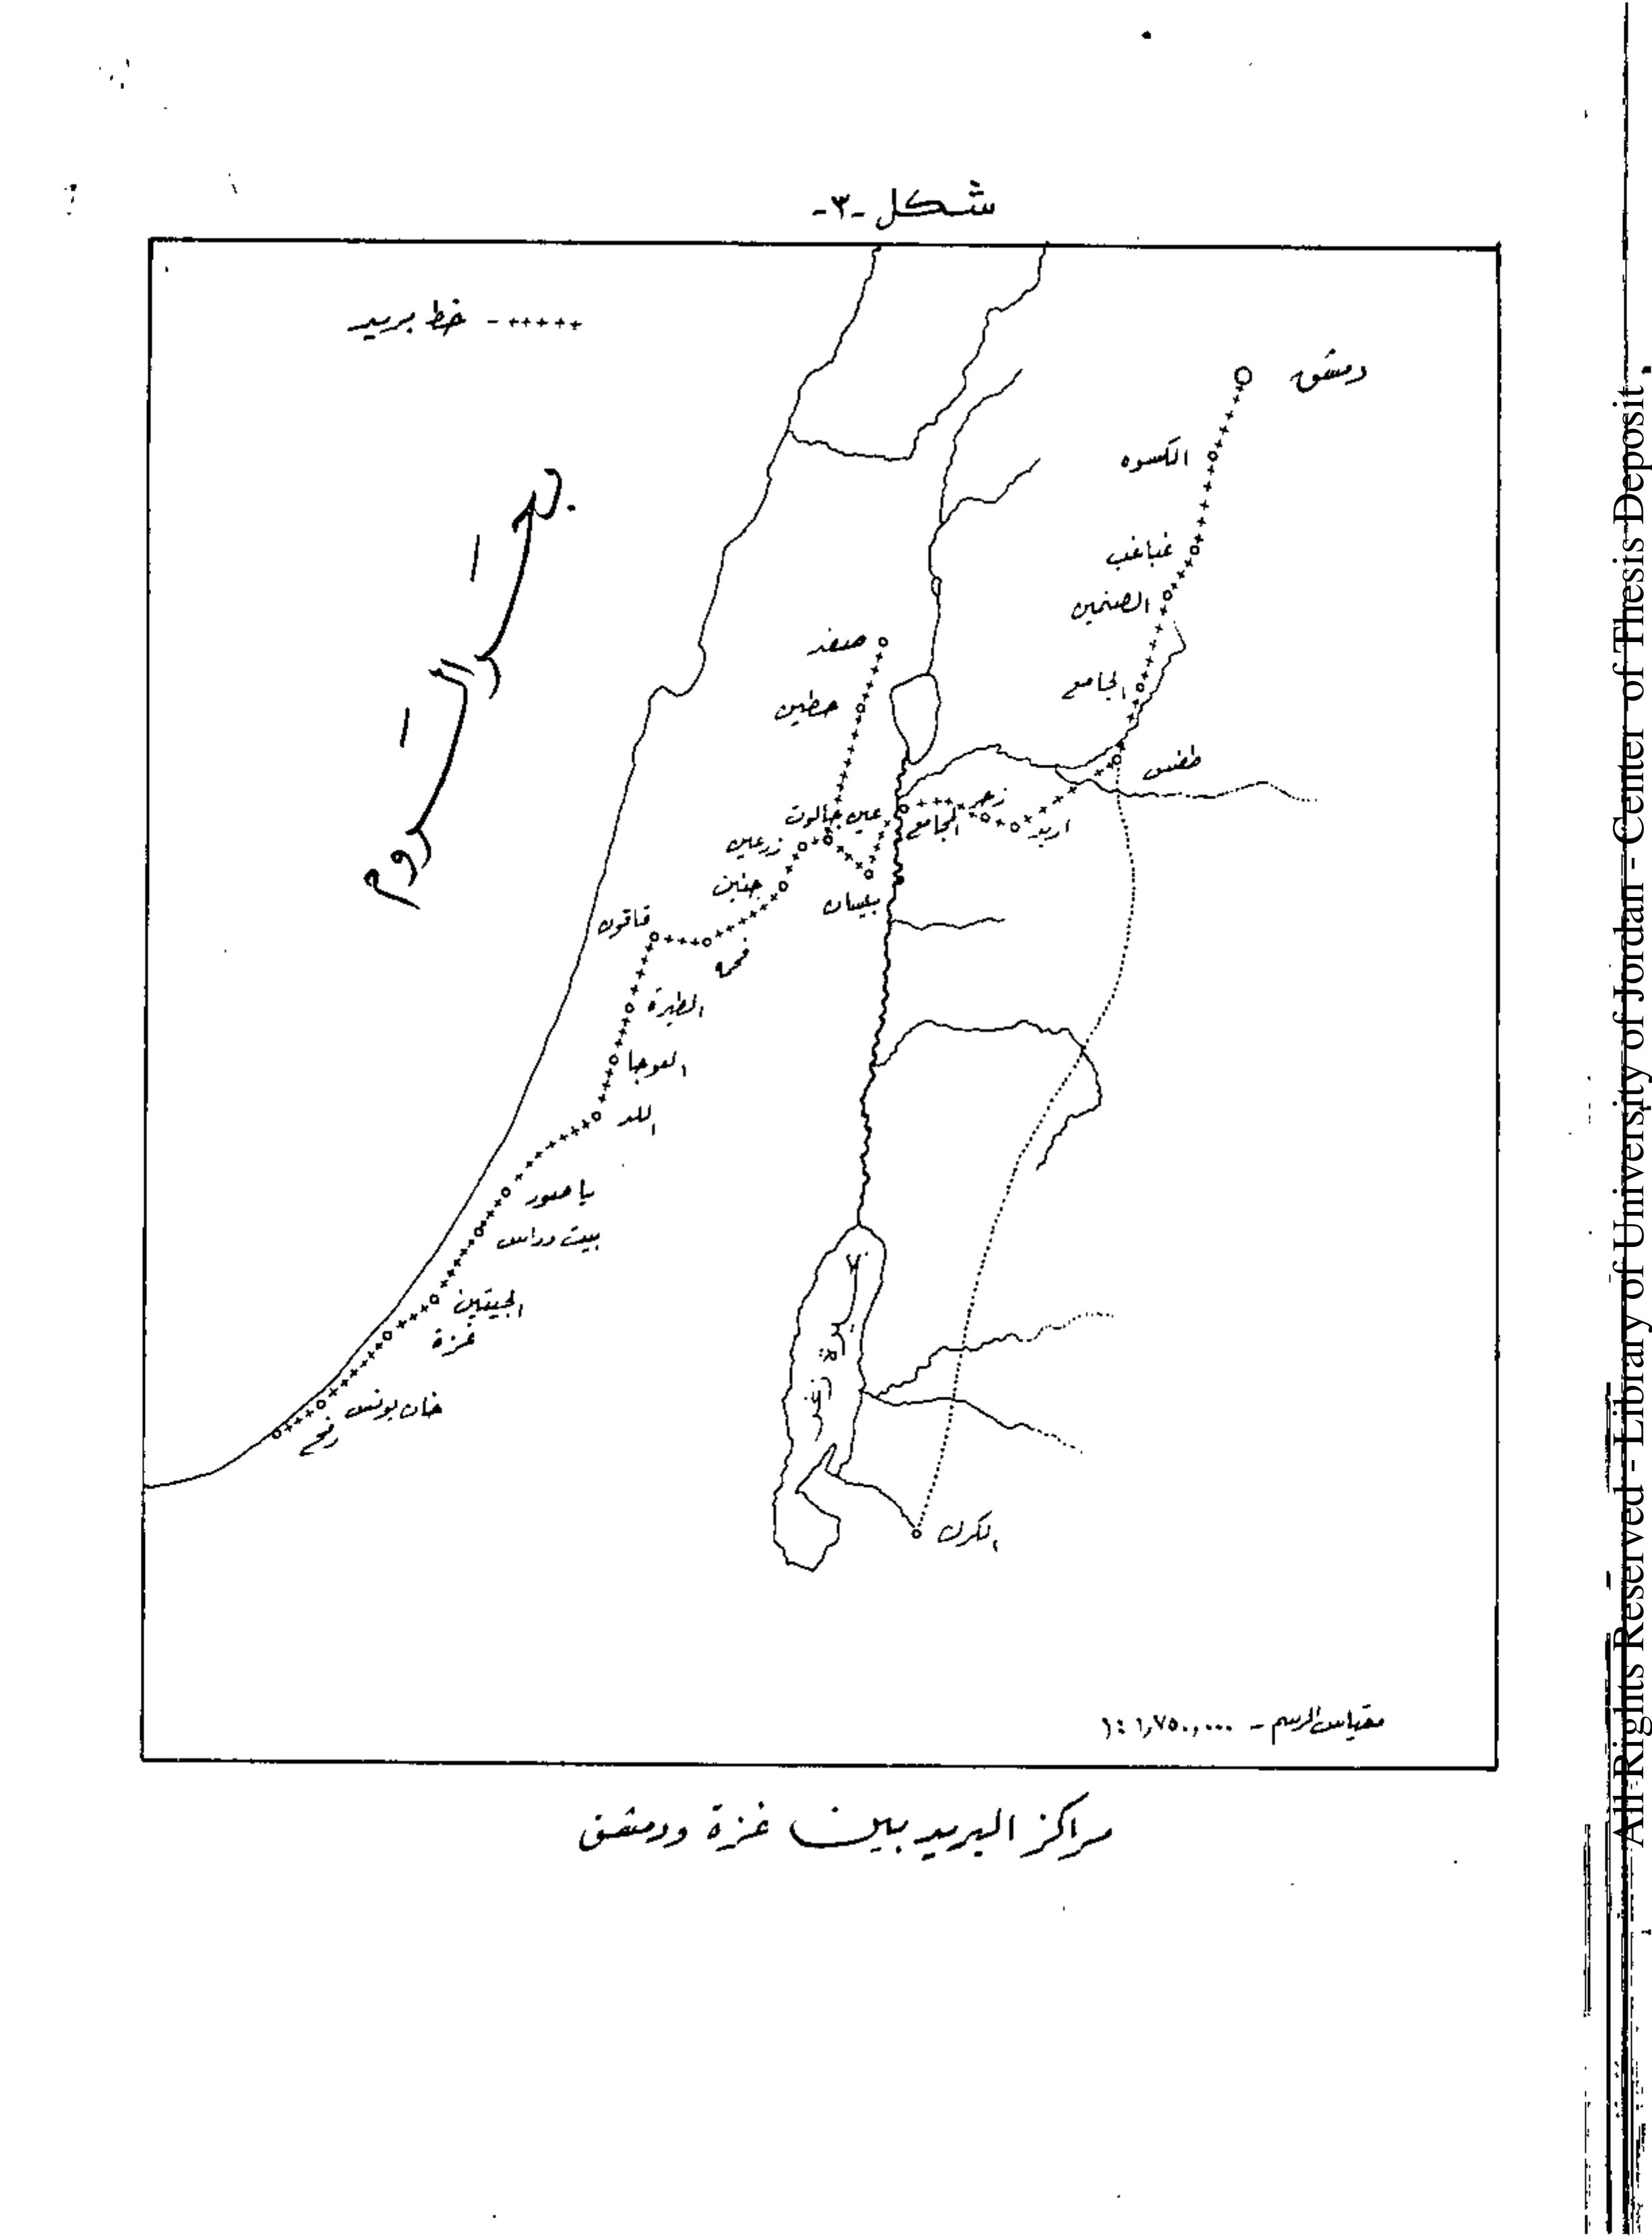 شكل -٣-
خط بريد
بحر الروم
دمشق
الكسوه
غباغب
الصنمين
الجامع
طفس
صفد
حطين
زحر
اربد
المجامع
عين جالوت
زرعين
بيسان
جنين
قاقون
فحمه
الطيرة
العوجا
اللد
ياصور
بيت دراس
الجيتين
غزة
خان يونس
رفح
الكرك
مقياس الرسم - ١:١,٧٥٠,٠٠٠
مراكز البريد بين غزة ودمشق
All Rights Reserved - Library of University of Jordan - Center of Thesis Deposit